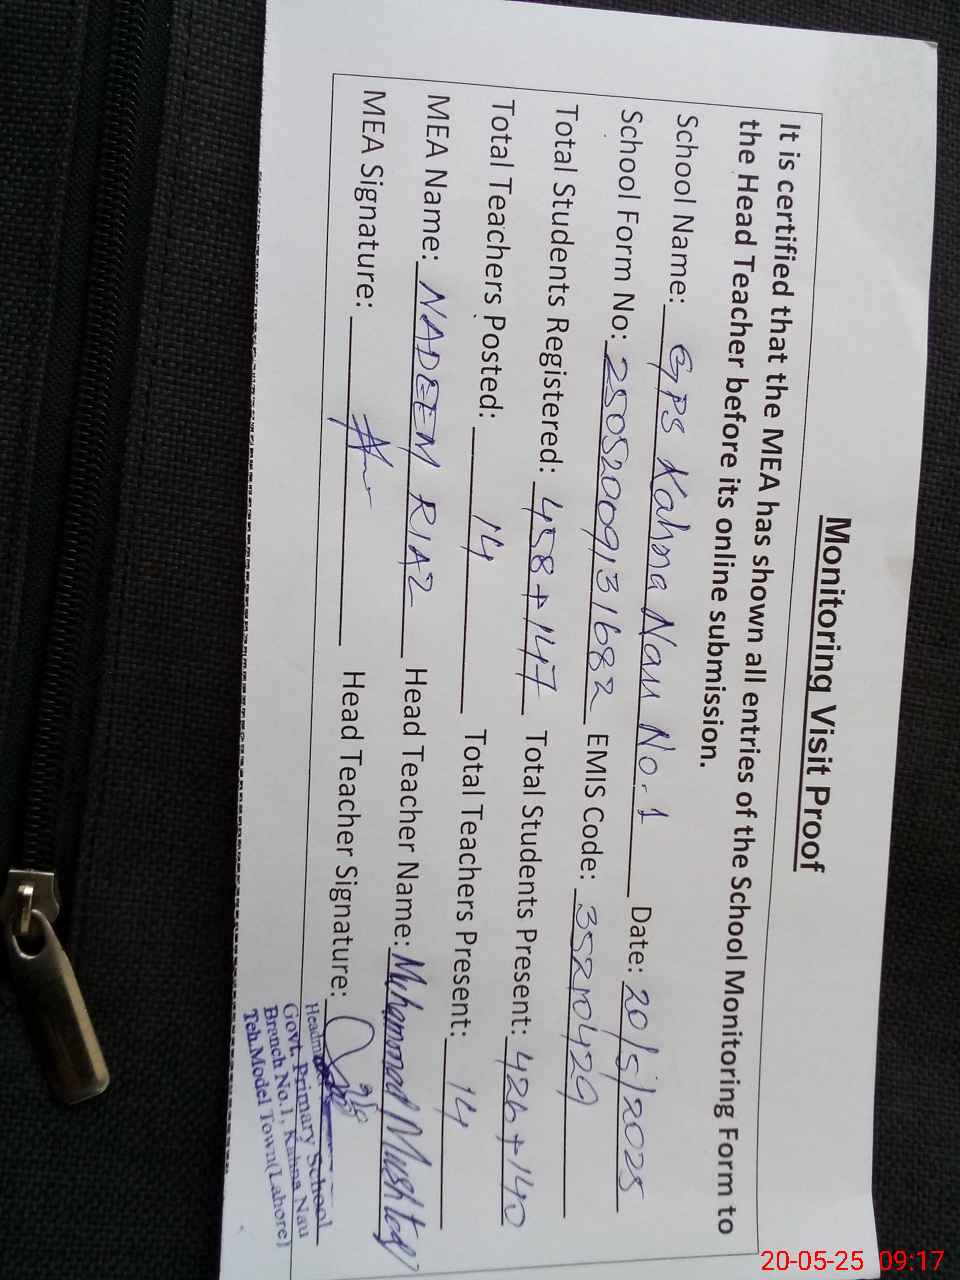 Monitoring Visit Proof
It is certified that the MEA has shown all entries of the School Monitoring Form to
the Head Teacher before its online submission.
School Name: GPS Kahna Nau No. 1 Date: 20/5/2025
School Form No: 2505200931682 EMIS Code: 35210429
Total Students Registered: 458+147 Total Students Present: 426+140
Total Teachers Posted: 14 Total Teachers Present: 14
MEA Name: NADEEM RIAZ Head Teacher Name: Muhammad Mushtaq
MEA Signature: Head Teacher Signature:
Govt. Primary School
Branch No.1, Kahna Nau
Teh.Model Town(Lahore)
20-05-25 09:17